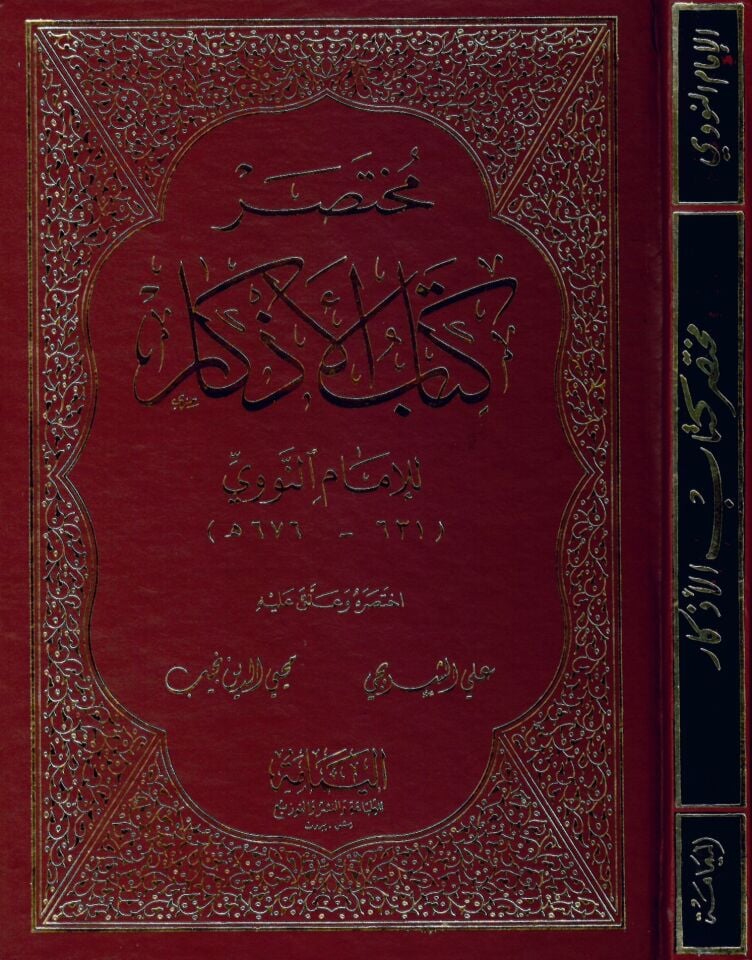 مُختَصَر
كِتَابُ الأَذْكَار
للإِمَامِ النَّوَوِيِّ
(٦٣١ - ٦٧٦ هـ)
اختَصَرَهُ وَعَلَّقَ عَلَيْهِ
علي الشربجي محيي الدين نجيب
اليَمَامَة
للطباعة والنشر والتوزيع
دمشق - بيروت
الإمام النووي
مختصر كتاب الأذكار
اليمامة